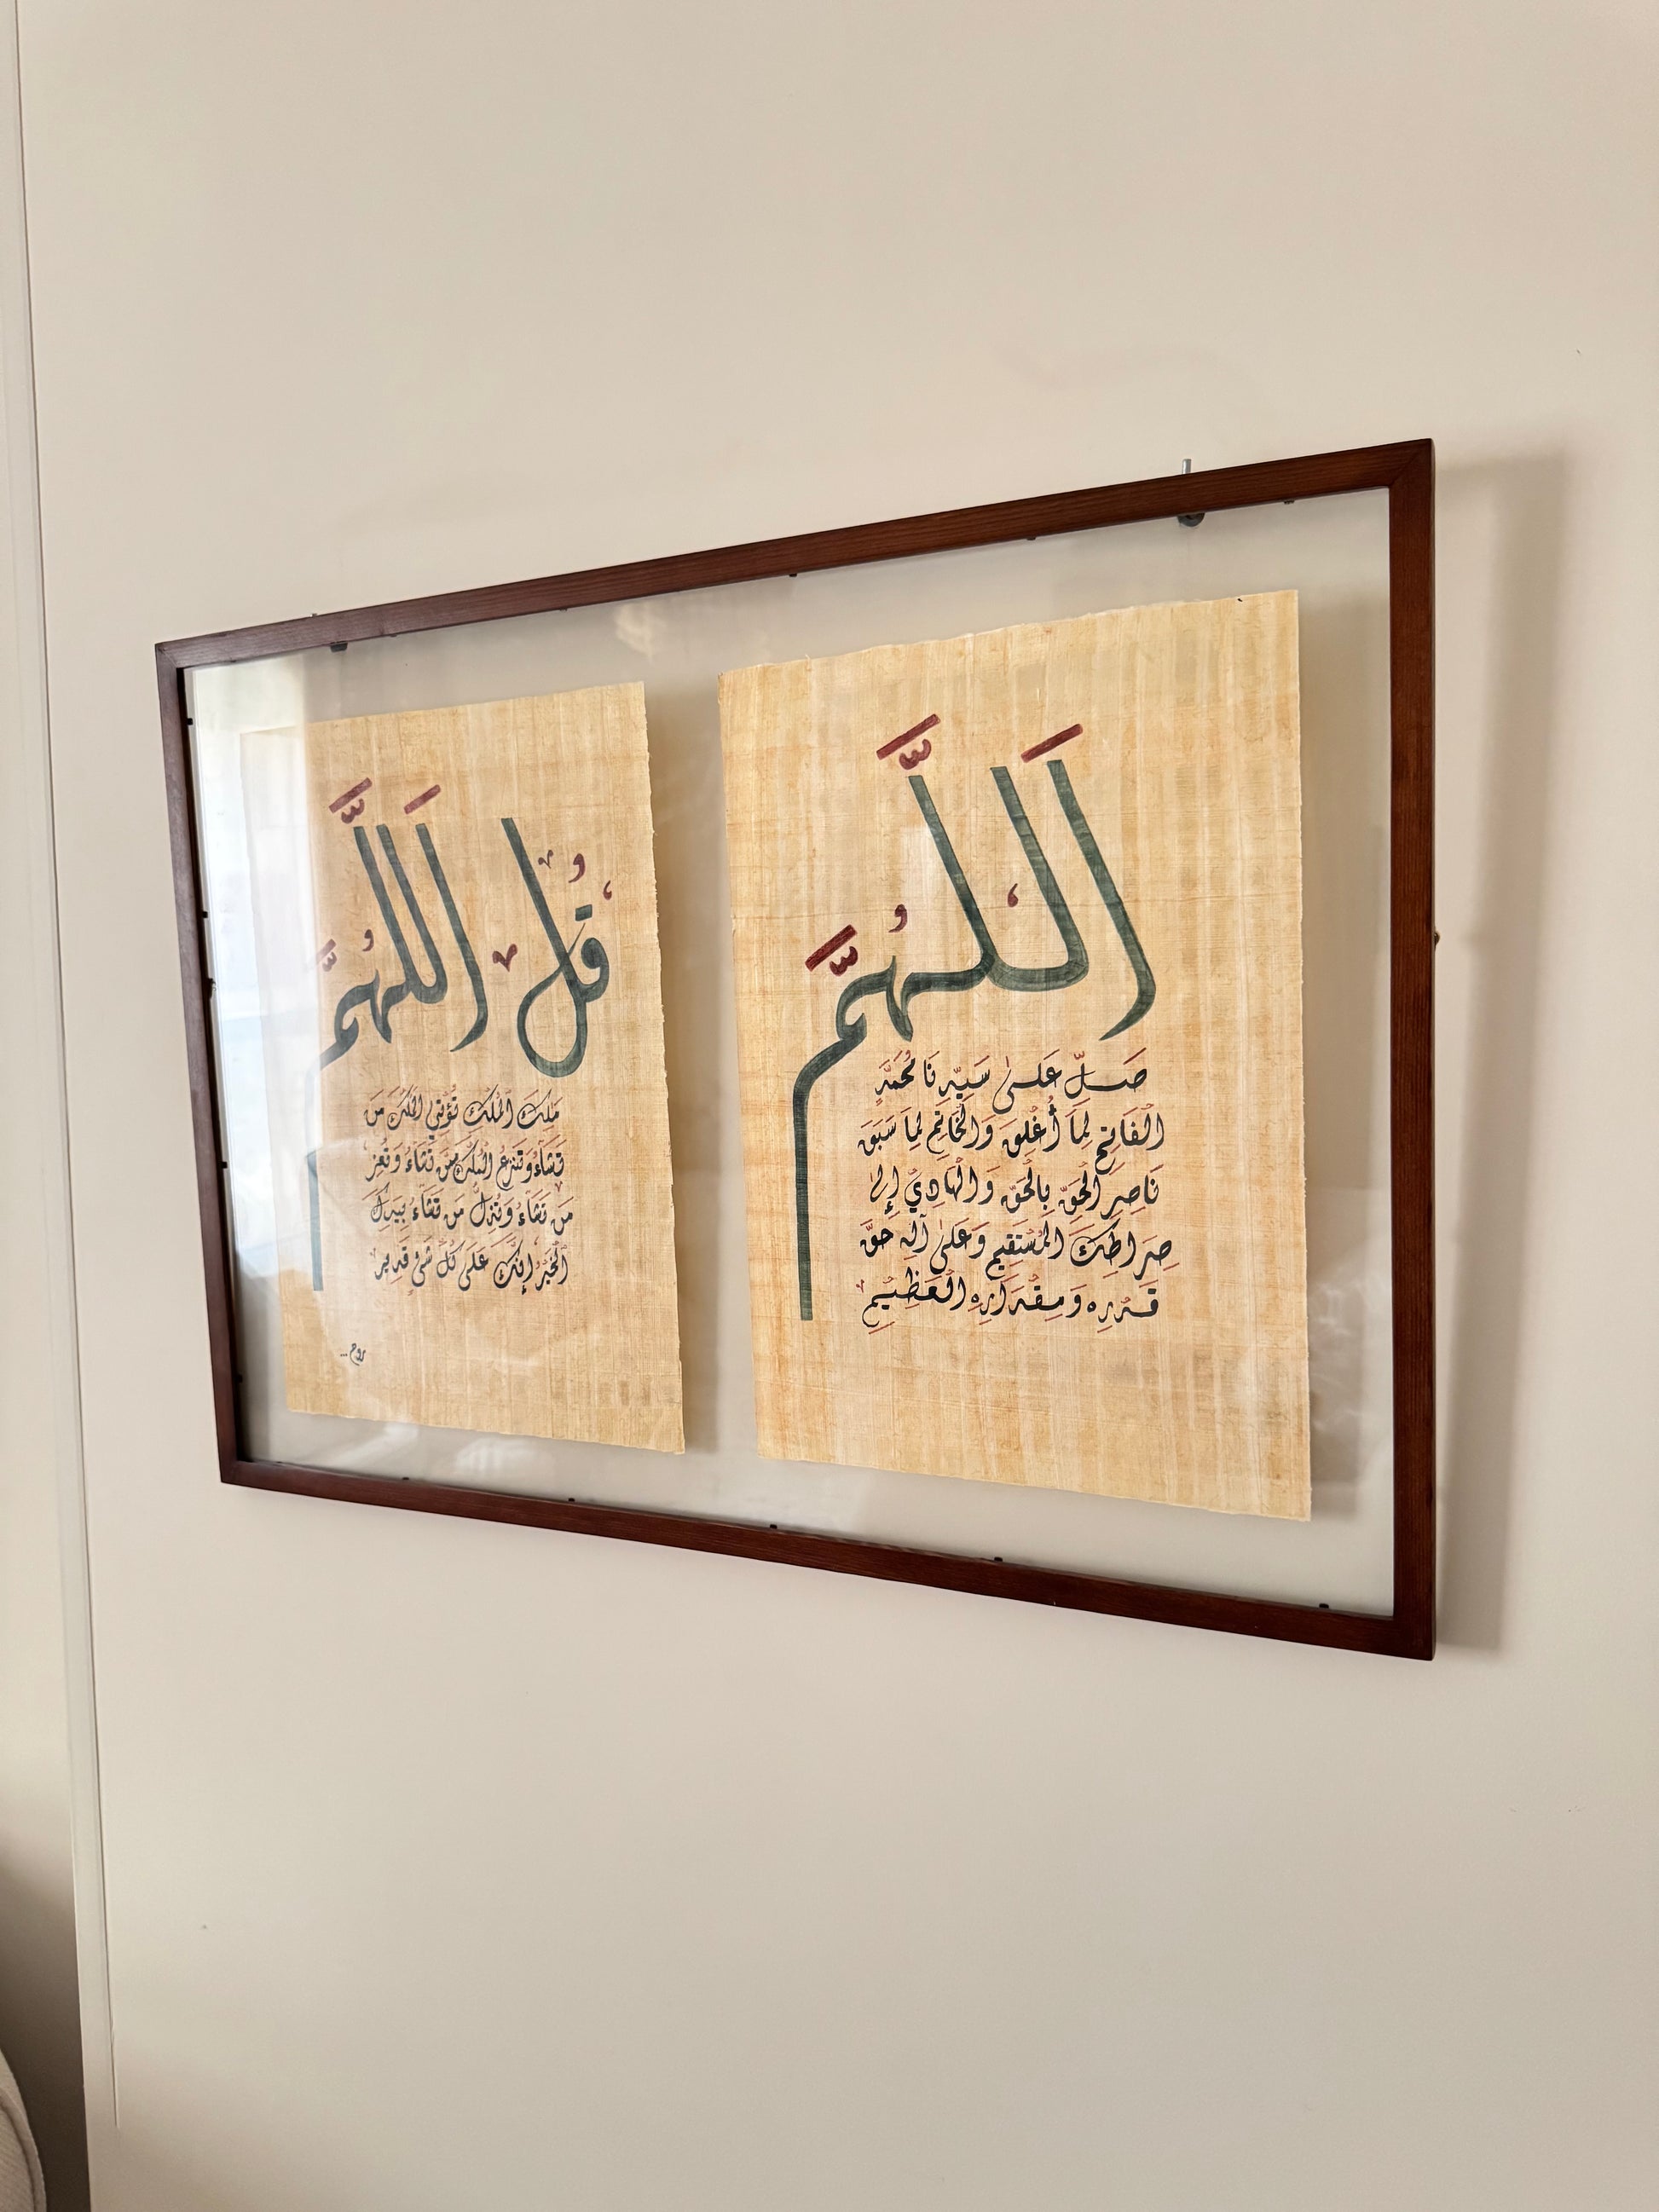 اَللّٰهُمَّ
صَلِّ عَلىٰ سَيِّدِنَا مُحَمَّدٍ
الْفَاتِحِ لِمَا أُغْلِقَ وَالْخَاتِمِ لِمَا سَبَقَ
نَاصِرِ الْحَقِّ بِالْحَقِّ وَالْهَادِيْ إِلىٰ
صِرَاطِكَ الْمُسْتَقِيمِ وَعَلىٰ آلِهِ حَقَّ
قَدْرِهِ وَمِقْدَارِهِ الْعَظِيْمِ
قُلْ اَللّٰهُمَّ
مَلِكَ الْمُلْكِ تُؤْتِي الْمُلْكَ مَن
تَشَآءُ وَتَنزِعُ الْمُلْكَ مِمَّن تَشَآءُ وَتُعِزُّ
مَن تَشَآءُ وَتُذِلُّ مَن تَشَآءُ بِيَدِكَ
الْخَيْرُ إِنَّكَ عَلَىٰ كُلِّ شَيْءٍ قَدِيرٌ